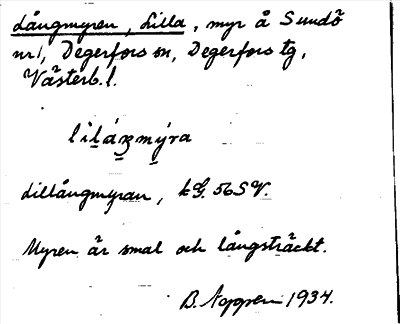 Långmyren, Lilla, myr å Sundö
nr 1, Degerfors sn, Degerfors tg,
Västerb. l.
lilåŋmýra
Lillångmyran, kG. 56 S V.
Myren är smal och långsträckt.
B. Aggren 1934.